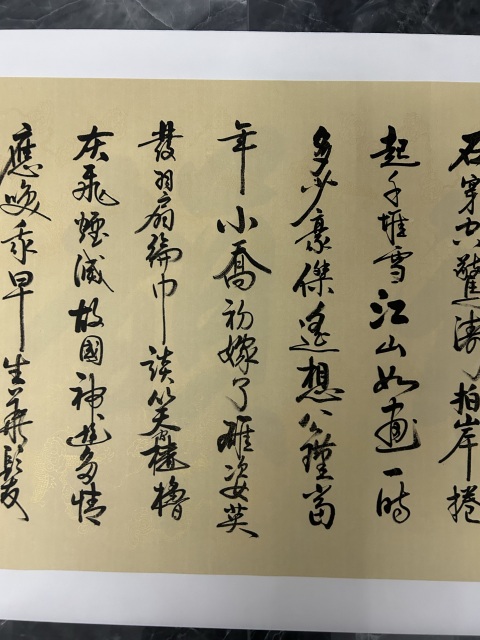 石穿空驚濤拍岸捲
起千堆雪江山如畫一時
多少豪傑遙想公瑾當
年小喬初嫁了雄姿英
發羽扇綸巾談笑間檣櫓
灰飛煙滅故國神遊多情
應咲我早生華髮